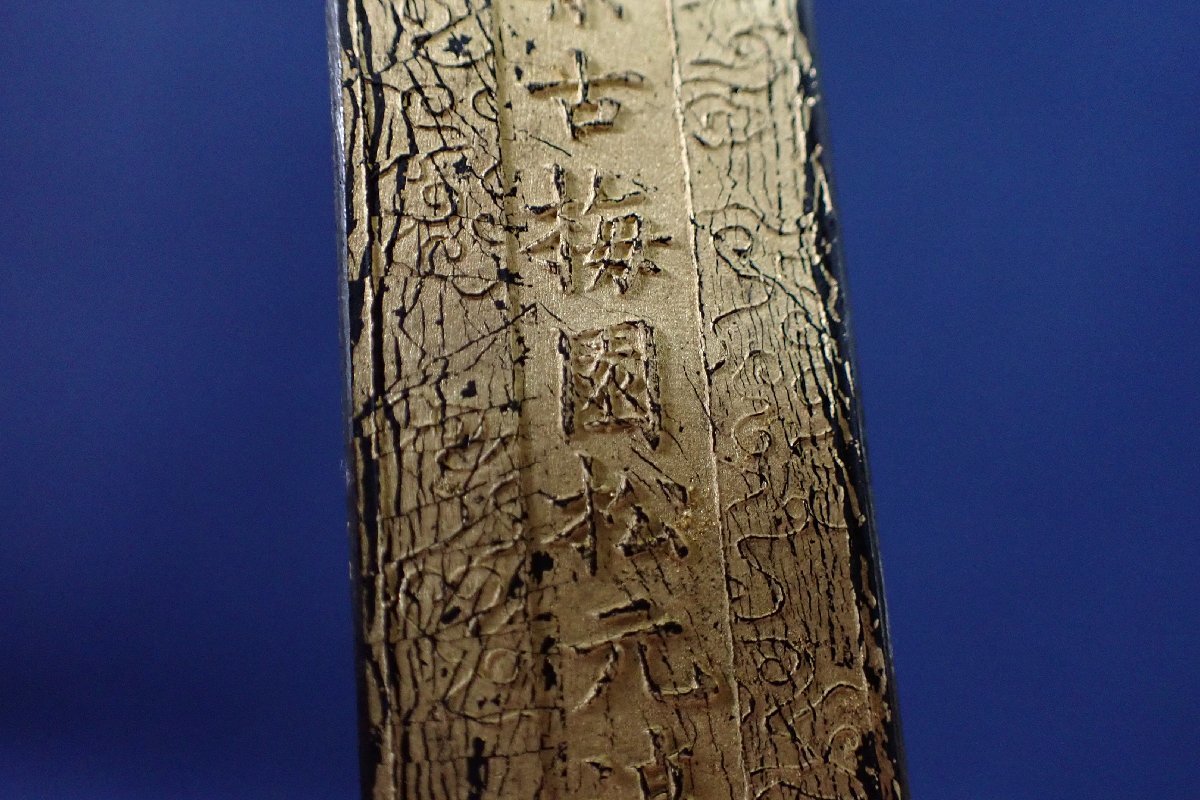 古梅園松元